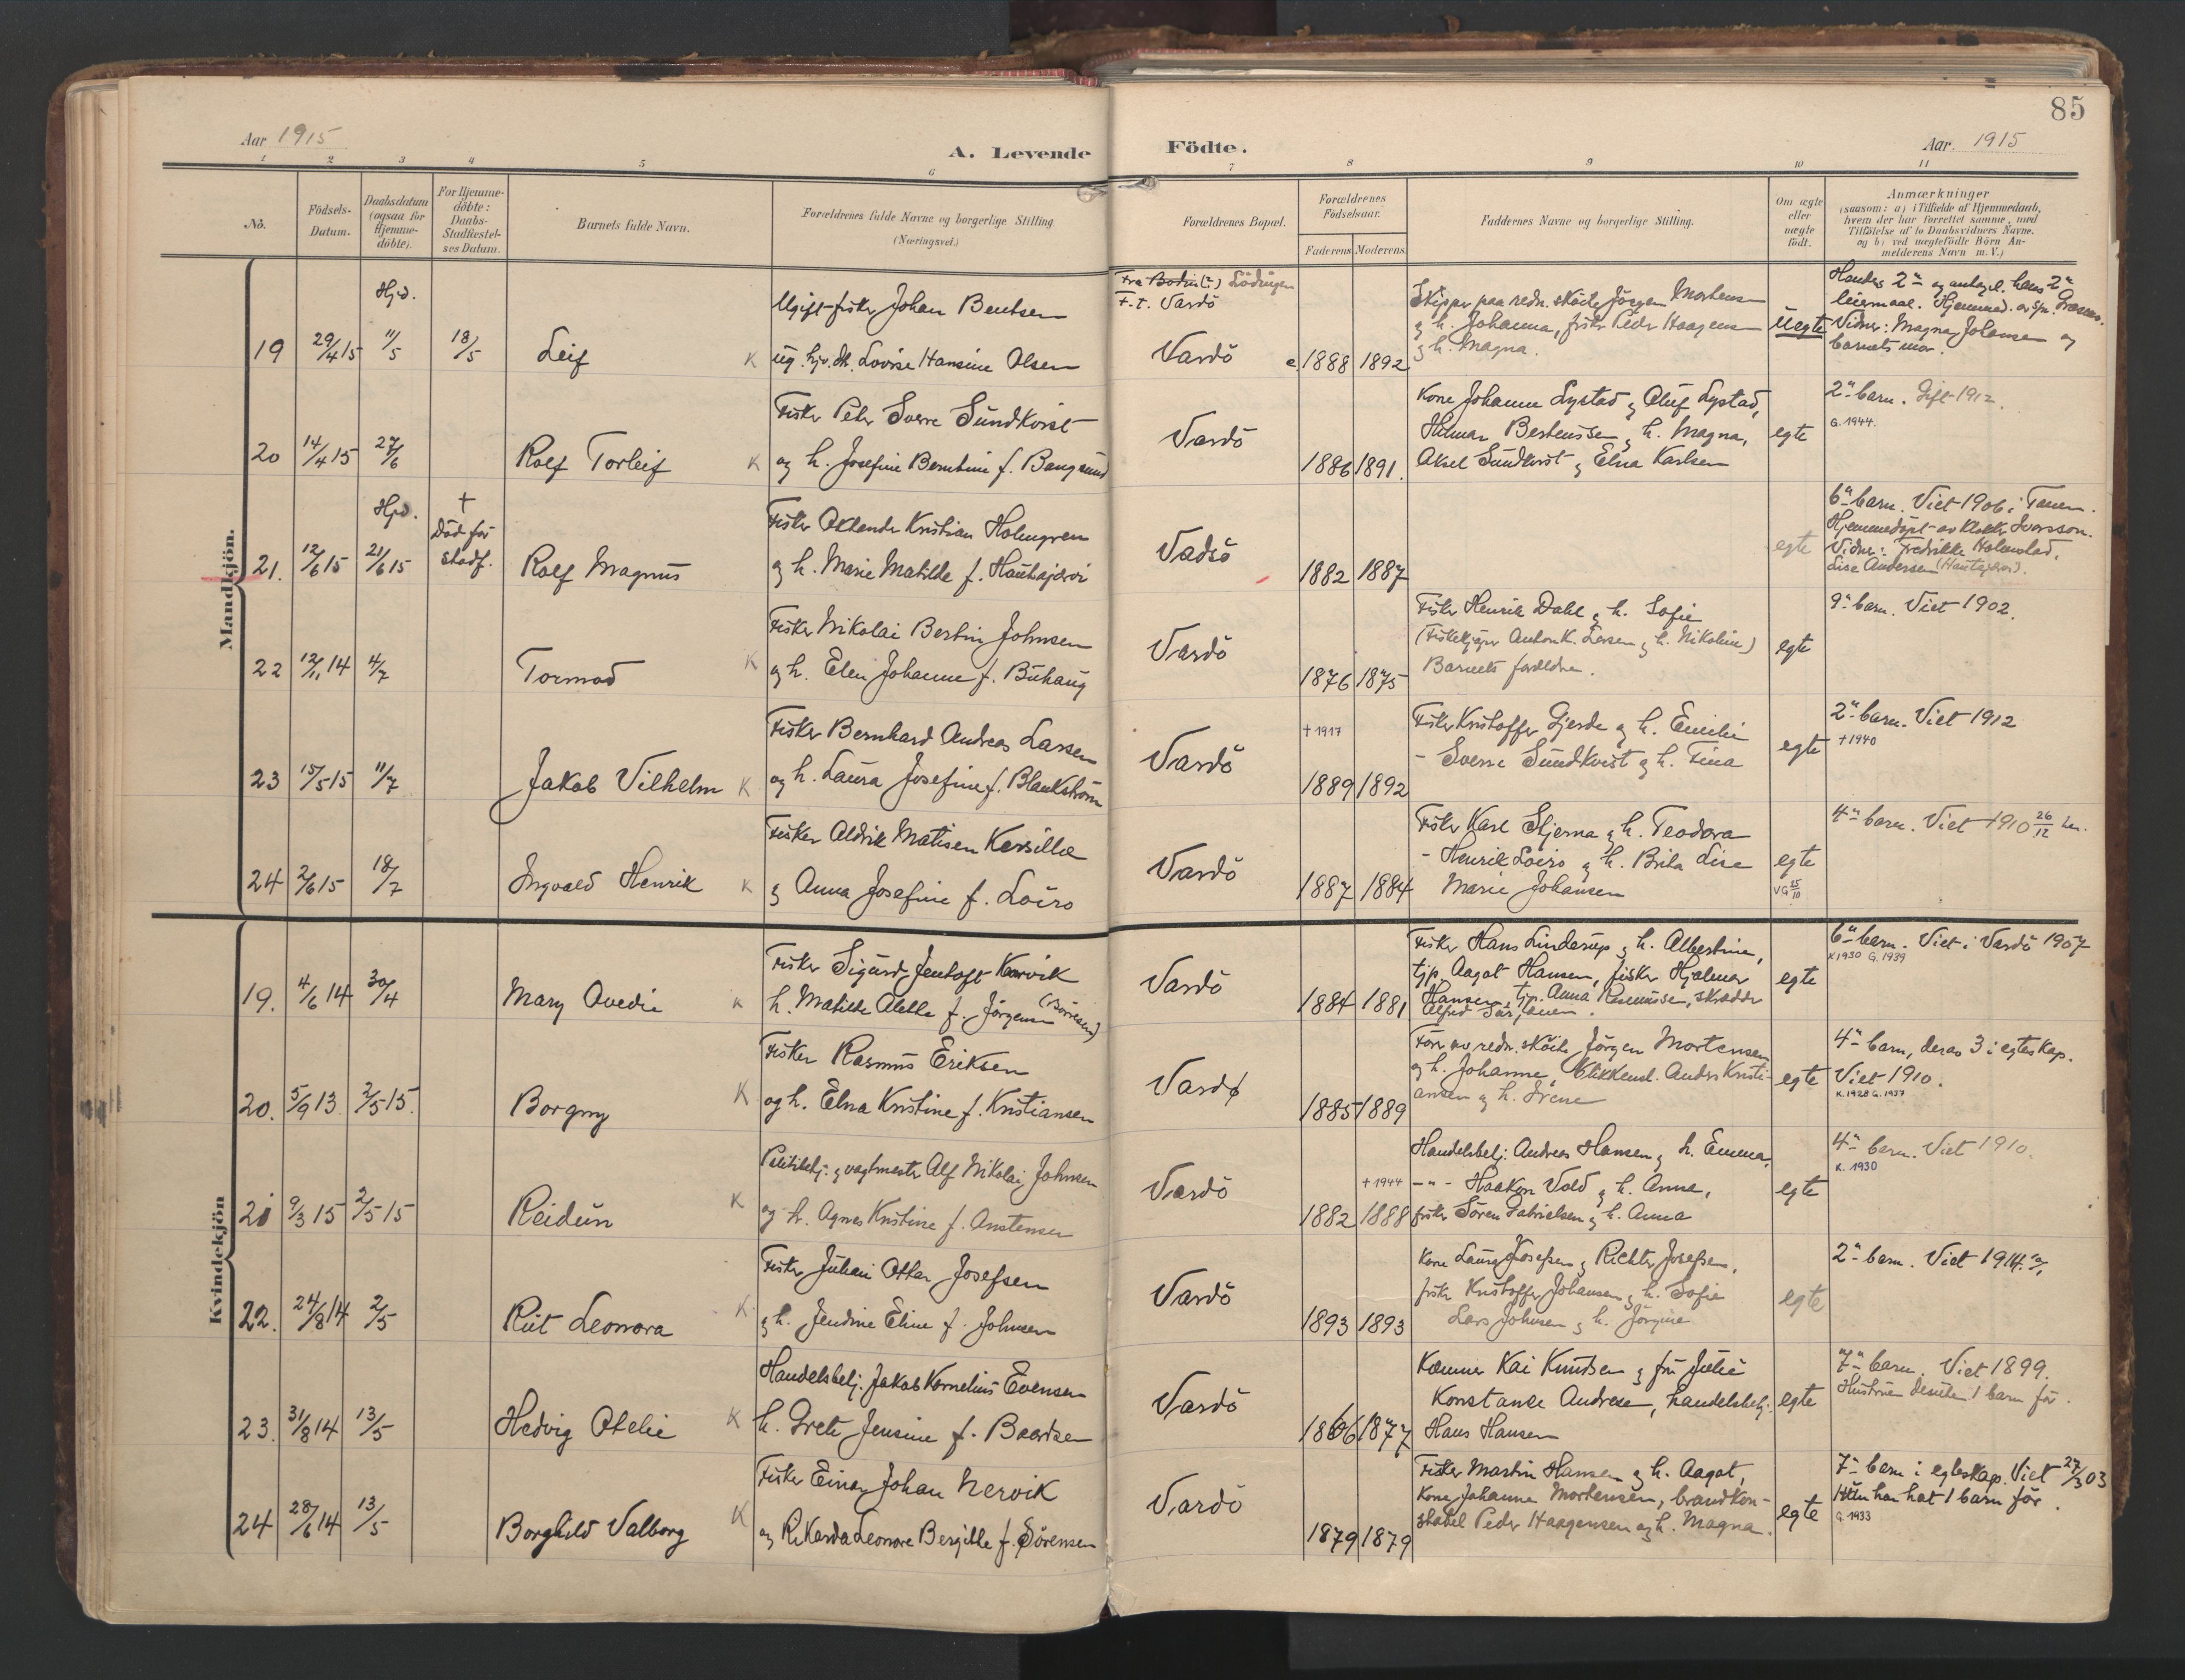 85
Aar 1915
A. Levende Födte.
Aar. 1915
1 2 3 4 5 6 7 8 9 10 11
No.
Födsels-Datum.
Daabsdatum (ogsaa for Hjemme-döbte).
For Hjemme-döbte: Daabs-Stadfæstel-ses Datum.
Barnets fulde Navn.
Forældrenes fulde Navne og borgerlige Stilling (Næringsvei.)
Forældrenes Bopæl.
Forældrenes Födselsaar.
Faderens Moderens
Faddernes Navne og borgerlige Stilling.
Om ægte eller uægte födt.
Anmærkninger
(saasom: a) i Tilfælde af Hjemmedaab,
hvem der har forrettet samme, med
Tilföielse af to Daabsvidners Navne.
og b) ved uægtefödte Börn An-
melderens Navn m. V.)
Mandkjön.
19 29/4 15 Hjd. 11/5 18/5 Leif K
Ugift fisker Johan Bentsen
ug. hjv. dk. Lovise Hansine Olsen
Fra Bodin(?) Lödingen
F. t. Vardö
Vardö
1888 1892
Skipper paa redn. sköite Jörgen Mortensen
og h. Johanna, fisker Peder Haagensen
og h. Magna.
Uegte
Vidner: Magna Johansen og
barnets mor.
20 14/4 15 27/6 Rolf Torleif K
Fisker Peter Sverre Sundkvist
og h. Josefine Berntine f. Bangsund
Vardö
1886 1891.
Kone Johanne Lystad og Oluf Lystad,
Hilmar Berteussen og h. Magna,
Aksel Sundkvist og Elna Karlsen
egte
2det barn. Gift 1912.
G. 1944.
21. 12/6 15 Hjd. 21/6 15 † Död før stadf. Rolf Magnus
Fisker Kristian Holmgren
og h. Marie Matilde f. Hauhajærvi
Vadsö
1882 1887
egte
6te barn. Viet 1906 i Tanen.
Hjemmedöpt av klokk. Iversson.
Vidner: Fredrikke Holmstad,
Lise Andersen
22 12/11 14 4/7 Tormod K
Fisker Nikolai Bertin Johnsen
og h. Elen Johanne f. Buhaug
Vardö
1876 1875
Fisker Henrik Dahl og h. Sofie
(Fiskekjöper Anton K. Larsen og h. Nikoline)
Barnets foreldre.
egte
9de barn. Viet 1902.
23 15/5 15 11/7 Jakob Vilhelm K
Fisker Bernhard Andreas Larsen
og h. Laura Josefine f. Blankström
Vardö
† 1917
1889 1892
Fisker Kristoffer Gjerde og h. Emilie
- Sverre Sundkvist og h. Tina
egte
2det barn. Viet 1912
† 1940
24 2/6 15 18/7 Ingvald Henrik K
Fisker Aldrik Matisen Kersilla
og Anna Josefine f. Loiro
Vardö
1887 1884
Fisker Karl Stjerna og h. Teodora
- Henrik Loiro og h. Brita Lise
Marie Johansen
egte
VG 25/10
4de barn. Viet 1910 26/12
Kvindekjön
19. 4/6 14 30/4 Mary Ovedie K
Fisker Sigurd Jentoft Karvik
h. Matilde Aletta f. Jörgensen (Börresen)
Vardö
1884 1881
Fisker Hans Linderup og h. Albertine,
tjp. Aagot Hansen, fisker Hjalmar
Hansen, tjp. Anna Rasmussen, skrædder
Alfred
egte
6te barn. Viet i Vardö 1907
K 1930 G. 1939
20. 5/9 13 2/5 15. Borgny K
Fisker Rasmus Eriksen
og h. Elna Kristine f. Kristiansen
Vardø
1885 1889
Förer av redn. sköite Jörgen Mortensen
og h. Johanne, blikkensl. Anders Kristi-
ansen og h. Irene
egte
4de barn, derav 3 i egteskap.
Viet 1910.
K. 1928 G. 1937
21 9/3 15 2/5 15 Reidun K
Politibetj. og vagtmester Alf Nikolai Johnsen
og h. Agnes Kristine f. Anstensen
Vardö
† 1944
1882 1888
Handelsbetj. Andreas Hansen og h. Emma,
-"- Haakon Vold og h. Anna,
fisker Sören Gabrielsen og h. Anna
egte
4de barn. Viet 1910.
K. 1930
22. 24/8 14 2/5 Rut Leonora K
Fisker Julian Ottar Josefsen
og h. Jendine Eline f. Johnsen
Vardö
1893 1893
Kone Laura Josefsen og Richter Josefsen,
fisker Kristoffer Johansen og h. Sofie
Lars Johnsen og h. Jörgine
egte
2det barn. Viet 1914.
23. 31/8 14 13/5 Hedvig Otelie K
Handelsbetj. Jakob Kornelius Evensen
h. Grete Jensine f. Baardsen
Vardö
1866 1877
Kæmner Kai Knudsen og fru Julie
Konstanse Andresen, handelsbetj.
Hans Hansen
egte
7de barn. Viet 1899.
Hustruen desuten 1 barn før.
24 28/6 14 13/5 Borghild Valborg K
Fisker Einar Johan Nervik
og Rikarda Leonore Bergitte f. Sörensen
Vardö
1879 1879
Fisker Martin Hansen og h. Aagot,
Kone Johanne Mortensen, brandkon-
stabel Peder Haagensen og h. Magna.
egte
7de barn i egteskap. Viet 27/3 03
Hun har hat 1 barn før.
G. 1933